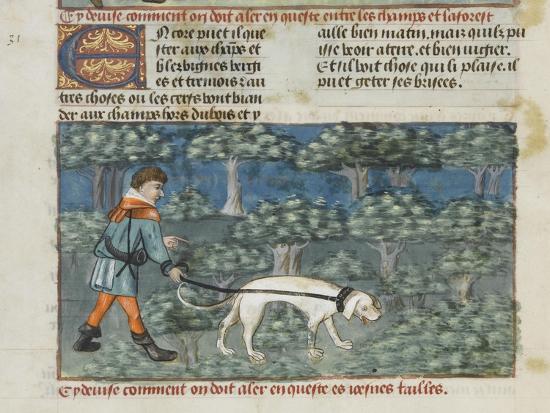 Cy deuise comment on doit aler en queste entre les champs et la forest
31
En core puet il que
ster aux chāps et
es et tremois z au
tres choses ou les cerfs vont vian
der aux champs hors du bois et y
aille bien matin. mais quil z pu
isse veoir a terre. et bien iugier.
Et sil voit chose qui li plaise. il
puet geter ses brisees.
Cy deuise comment on doit aler en queste es ioesnes tailles.